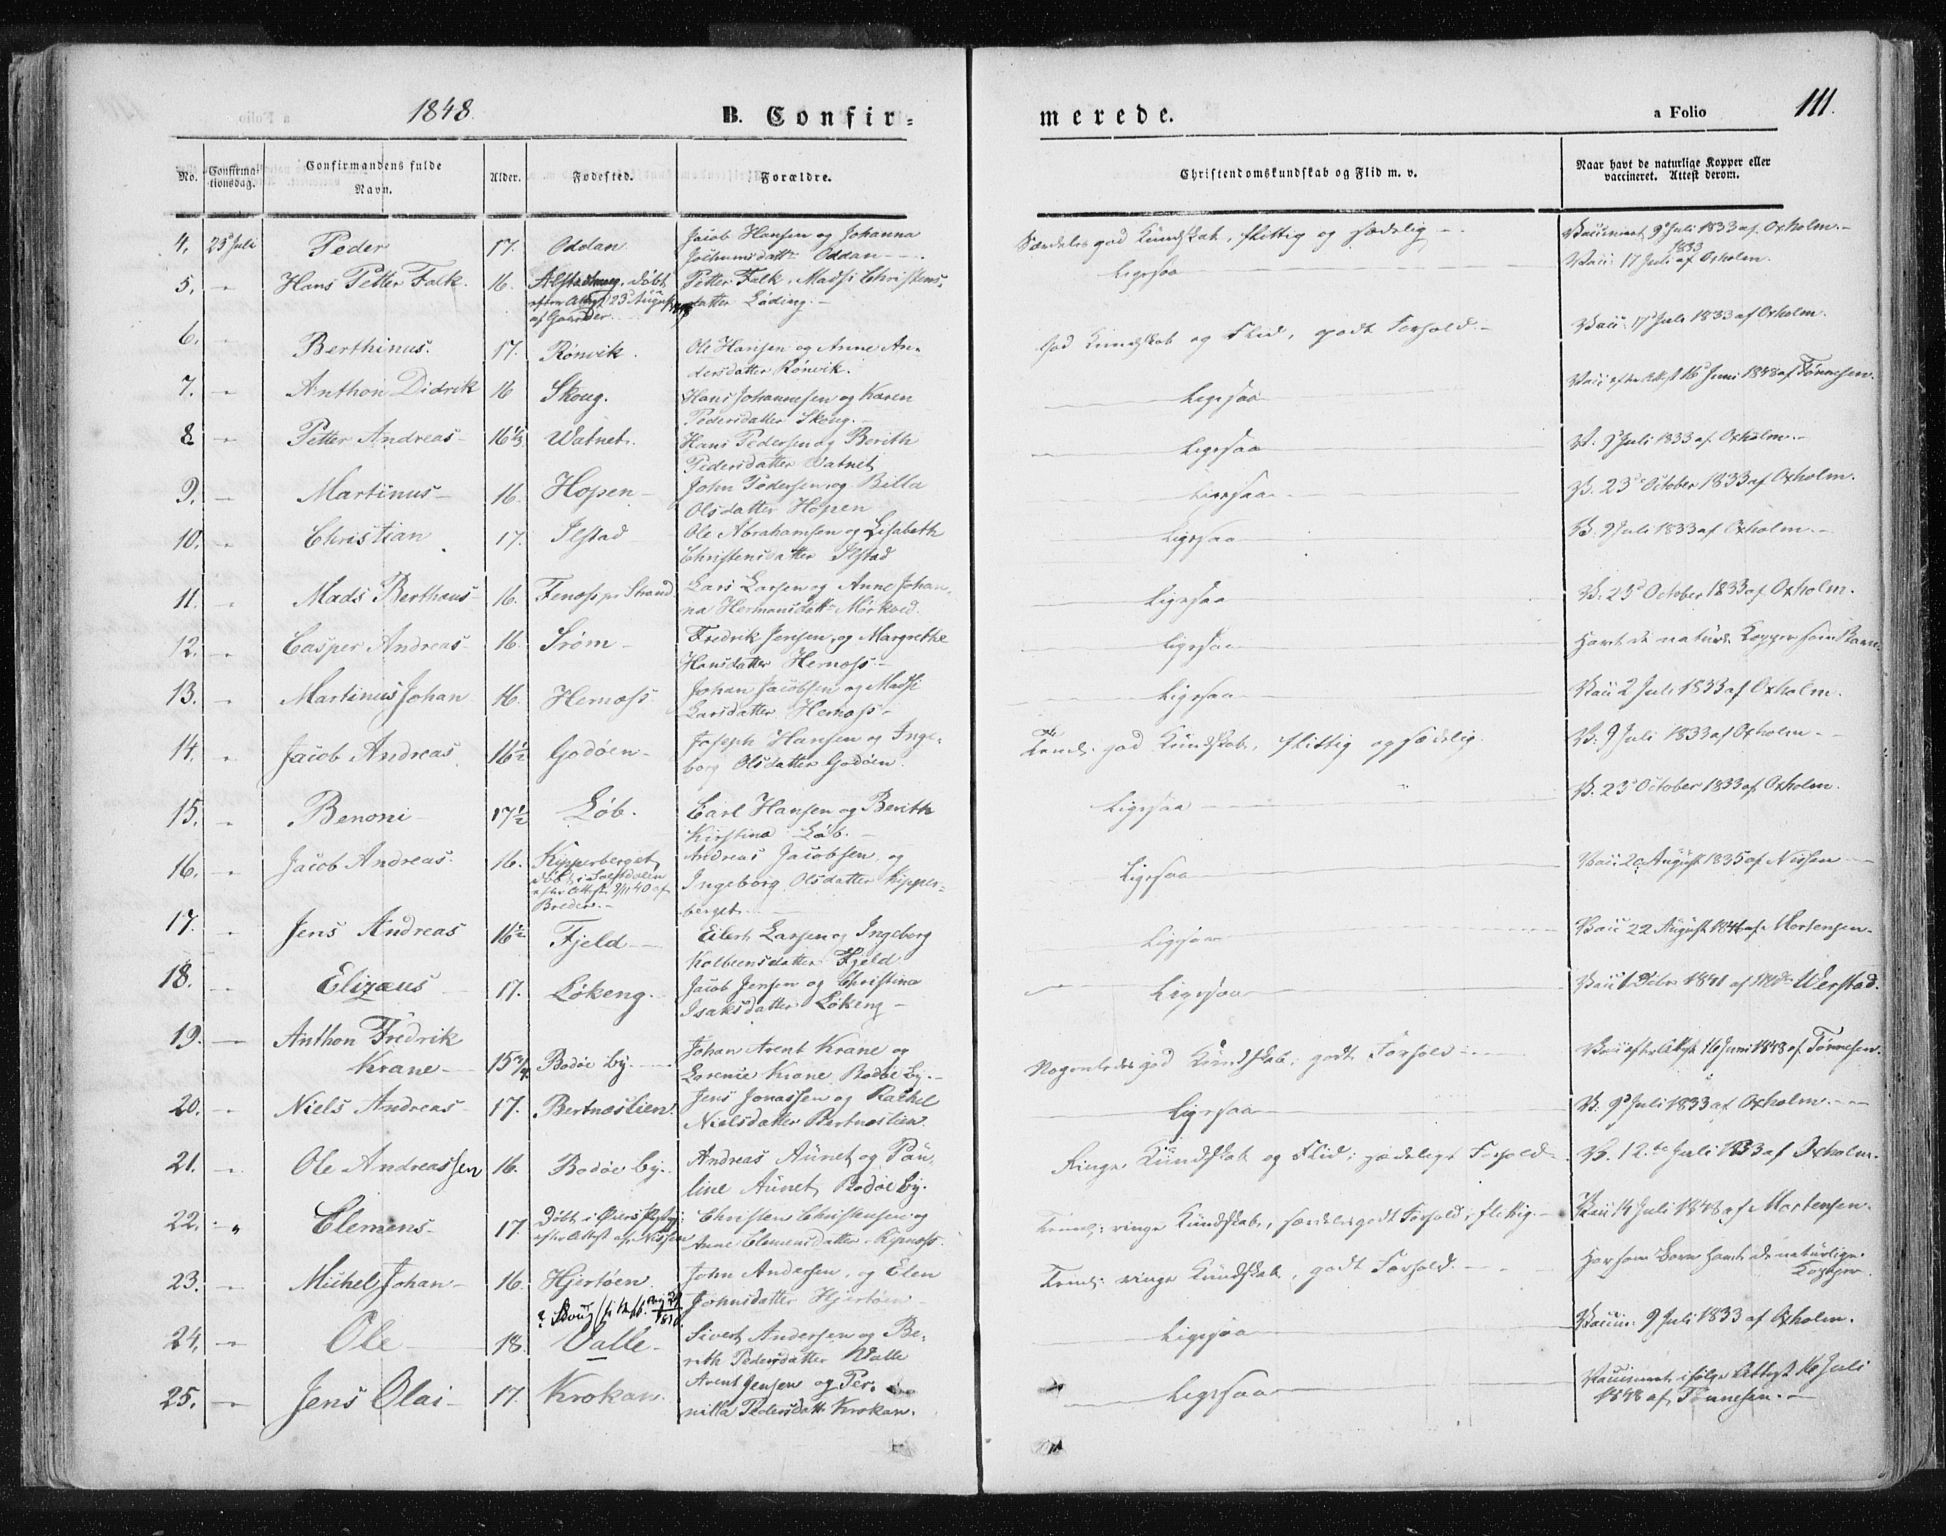 1848.
B. Confir=
merede.
a Folio 111.
No. Confirmationsdag. Confirmandens fulde Navn. Alder. Fødested. Forældre. Christendomskundskab og Flid m. v. Naar havt de naturlige Kopper eller vaccineret. Attest derom.
4. 25 Juli Peder 17. Oddan Jacob Hansen og Johanna Jochumsdatt. Oddan Særdeles god Kundskab, flittig og sædelig Vaccineret 9 Juli 1833 af Oxholm.
5. Hans Petter Falk. 16. Alstadhaug, døbt efter Attest 23 August af Petter Falk, Madsi Christensdatter Løding. Ligesaa Vacc: 17 Juli 1833 af Oxholm.
6. Berthinus. 17. Rønvik. Ole Hansen og Anne Andersdatter Rønvik. God Kundskab og Flid, godt Forhold. Vacc: 17 Juli 1833 af Oxholm.
7. Anthon Didrik 16 Skoug. Hans Johannesen og Karen Pedersdatter Skoug. Ligesaa Vacc. efter Attest 16 Juni 1848 af Tønnesen.
8. Petter Andreas 16 1/3 Vatnet. Hans Pedersen og Berith Pedersdatter Vatnet Ligesaa V. 9 Juli 1833 af Oxholm.
9. Martinus 16. Hopen John Pedersen og Billa Olsdatter Hopen Ligesaa V. 23de October 1833 af Oxholm.
10. Christian 17. Ilstad Ole Abrahamsen og Lisabeth Christensdatter Ilstad Ligesaa V. 9 Juli 1833 af Oxholm.
11. Mads Berthæus 16. Strand Lars Larsen og Anne Johanna Hermansdatt. Mørkved. Ligesaa V. 23 October 1833 af Oxholm.
12. Casper Andreas 16. Srøm Fredrik Jensen og Margrethe Hansdatter Hernæss Ligesaa Havt de naturl. Kopper som Barn
13. Martinus Johan 16. Hernæss Johan Jacobsen og Madsi Larsdatter Hernæss Ligesaa Vacc 2 Juli 1833 af Oxholm.
14. Jacob Andreas 16 1/2 Godøen Joseph Hansen og Ingeborg Olsdatter Godøen. Temel. god Kundskab, flittig og sædelig. V. 9 Juli 1833 af Oxholm
15. Benoni 17 1/2 Løb. Carl Hansen og Berith Kirstina Løb. Ligesaa V. 23 October 1833 af Oxholm.
16. Jacob Andreas. 16. Kipperberget, døbt i Saltdalen efter Attest 9/11 40 af Andreas Jacobsen og Ingeborg Olsdatter Kipperberget. Ligesaa Vacc 20 August 1835 af Nissen
17. Jens Andreas 16 1/2 Fjeld Eilert Larsen og Ingeborg Kolbensdatter Fjeld Ligesaa Vacc 22 August 1846 af Mortensen.
18. Elizæus 17. Løkeng. Jacob Jensen og Christina Isaksdatter Løkeng Ligesaa Vacc 1841 af Werstad.
19. Anthon Fredrik Krane 15 3/4 Bodøe by. Johan Arent Krane og Lorense Krane Bodøe by. Nogenledes god Kundskab, godt Forhold Vacc efter Attest 16 Juni 1848 af Tønnesen.
20. Niels Andreas 17. Bertnæslien. Jens Jonassen og Rachel Nielsdatter Bertnæslien. Ligesaa V. 9 Juli 1833 af Oxholm.
21. Ole Andreassen 16. Bodøe by. Andreas Aunet og Pauline Aunet, Bodøe by. Ringe Kundskab og Flid, sædeligt Forhold V. 12te Juli 1833 af Oxholm.
22. Clemens 17. Døbt i efter Attest af Nissen Christen Christensen og Anne Clemensdatter Temel: ringe Kundskab, særdeles godt Forhold, flittig. Vacc 14 Juli 1848 af Mortensen.
23. Michel Johan 16. Hjertøen. John Andersen og Elen Johnsdatter Hjertøen Temel: ringe Kundskab, godt Forhold. Har som Barn havt de naturlige Kopper.
24. Ole 18. ? Skoug Valle Sivert Andersen og Berith Pedersdatter Walle Ligesaa Vaccin: 9 Juli 1833 af Oxholm.
25. Jens Olai 17. Krokan. Arent Jensen og Pernilla Pedersdatt. Krokan. Ligesaa Vaccineret ifølge Attest 16 Juli 1848 af Tønnesen.